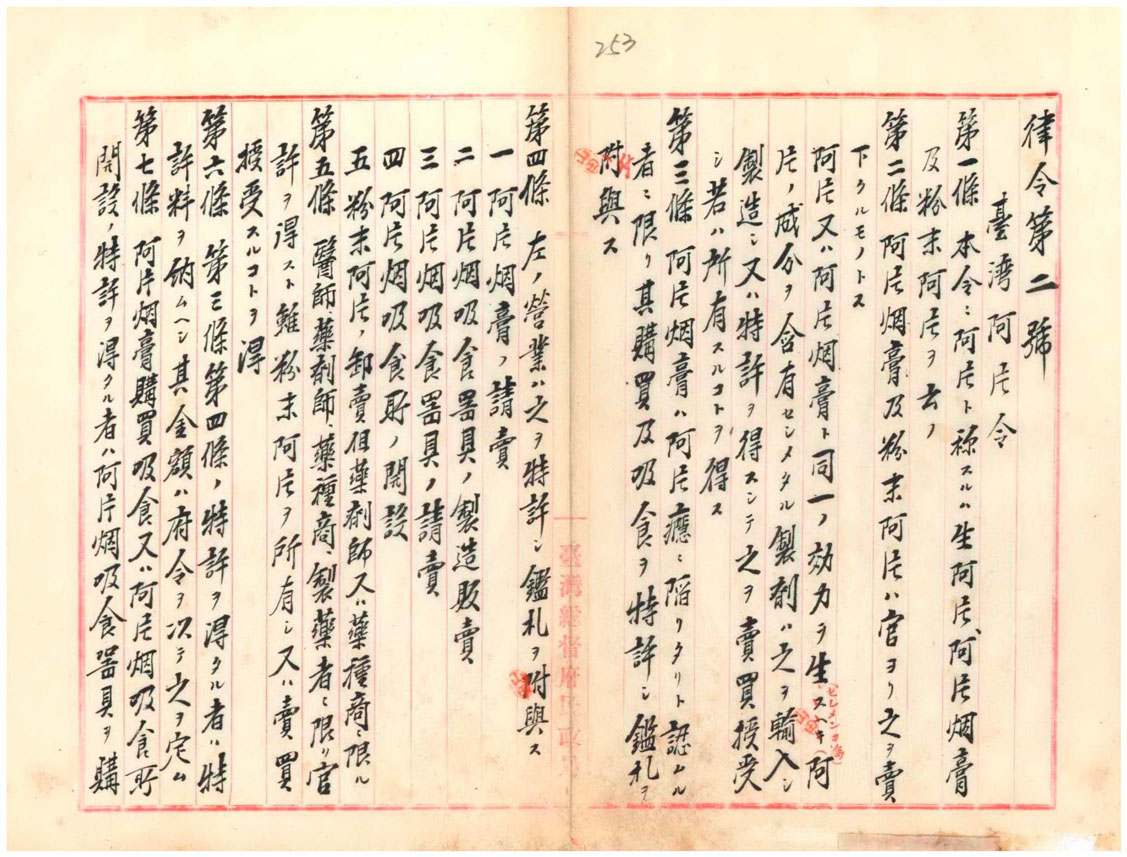 253
律令第二號
臺灣阿片令
第一條 本令ニ阿片ト稱スルハ生阿片、阿片烟膏
及粉末阿片ヲ云フ
第二條 阿片烟膏及粉末阿片ハ官ヨリ之ヲ賣
下クルモノトス
阿片又ハ阿片烟膏ト同一ノ効力ヲ生スヘキ阿
片ノ成分ヲ含有セシメタル製剤ハ之ヲ輸入シ
製造シ又ハ特許ヲ得スシテ之ヲ賣買授受
シ若ハ所有スルコトヲ得ス
第三條 阿片烟膏ハ阿片癮ニ陷リタリト認ムル
者ニ限リ其購買及吸食ヲ特許シ鑑札ヲ
附與ス
第四條 左ノ營業ハ之ヲ特許シ鑑札ヲ附與ス
一 阿片烟膏ノ請賣
二 阿片烟吸食器具ノ製造販賣
三 阿片烟吸食器具ノ請賣
四 阿片烟吸食所ノ開設
五 粉末阿片ノ卸賣但藥剤師又ハ藥種商ニ限ル
第五條 醫師、藥剤師、藥種商、製藥者ニ限リ官
許ヲ得スト雖粉末阿片ヲ所有シ又ハ賣買
授受スルコトヲ得
第六條 第三條第四條ノ特許ヲ得タル者ハ特
許料ヲ納ムヘシ其金額ハ府令ヲ以テ之ヲ定ム
第七條 阿片烟膏購買吸食又ハ阿片烟吸食所
開設ノ特許ヲ得タル者ハ阿片烟吸食器具ヲ購
臺灣總督府民政局